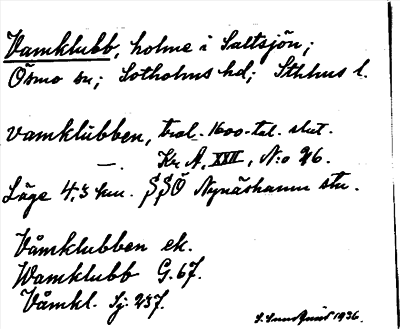 Vamklubb, holme i Saltsjön;
Ösmo sn; Sotholms hd; Sthlms l.
vamklübben, trol. 1600-tal. slut.
—. Kr. A. XXII, N:o 26.
Läge 4,5 km. SSÖ Nynäshamn stn.
Våmklubben ek.
Wamklubb G. 67.
Våmkl. Sj. 237.
1936.